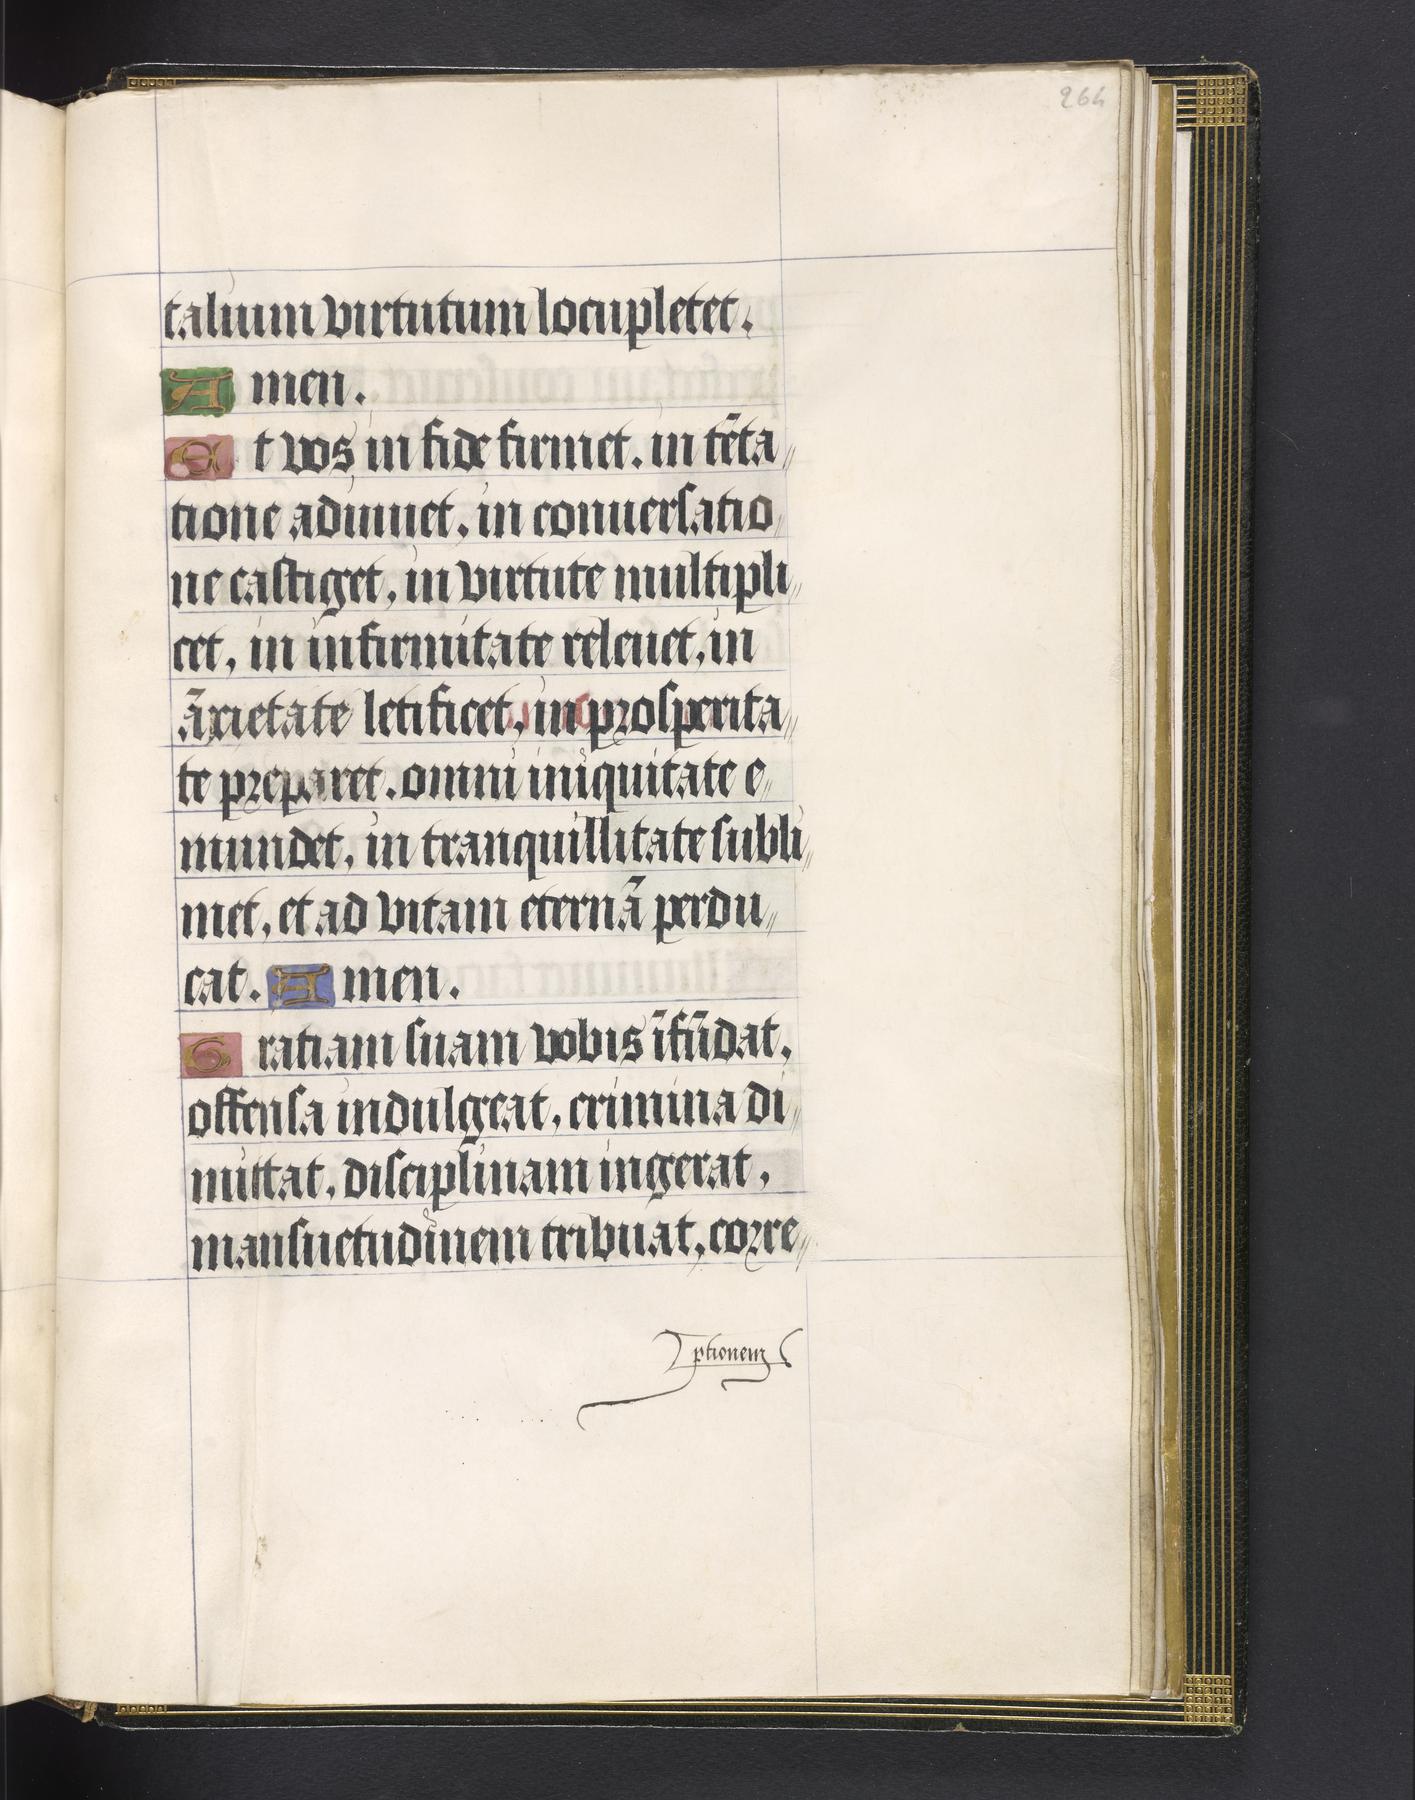 264
talium virtutum locupletet.
Amen.
Et vos in fide firmet. in tẽta〃
tione adiuuet, in conuersatio〃
ne castiget, in virtute multipli〃
cet, in infirmitate releuet, in
ãxietate letificet, in prosperita〃
te preparet. omni iniquitate e〃
mundet, in tranquillitate subli〃
met, et ad vitam eternã perdu〃
cat. Amen.
Gratiam suam vobis ĩfũdat,
offensa indulgeat, crimina di〃
mittat, disciplinam ingerat,
mansuetudinem tribuat, corre〃
ptionem